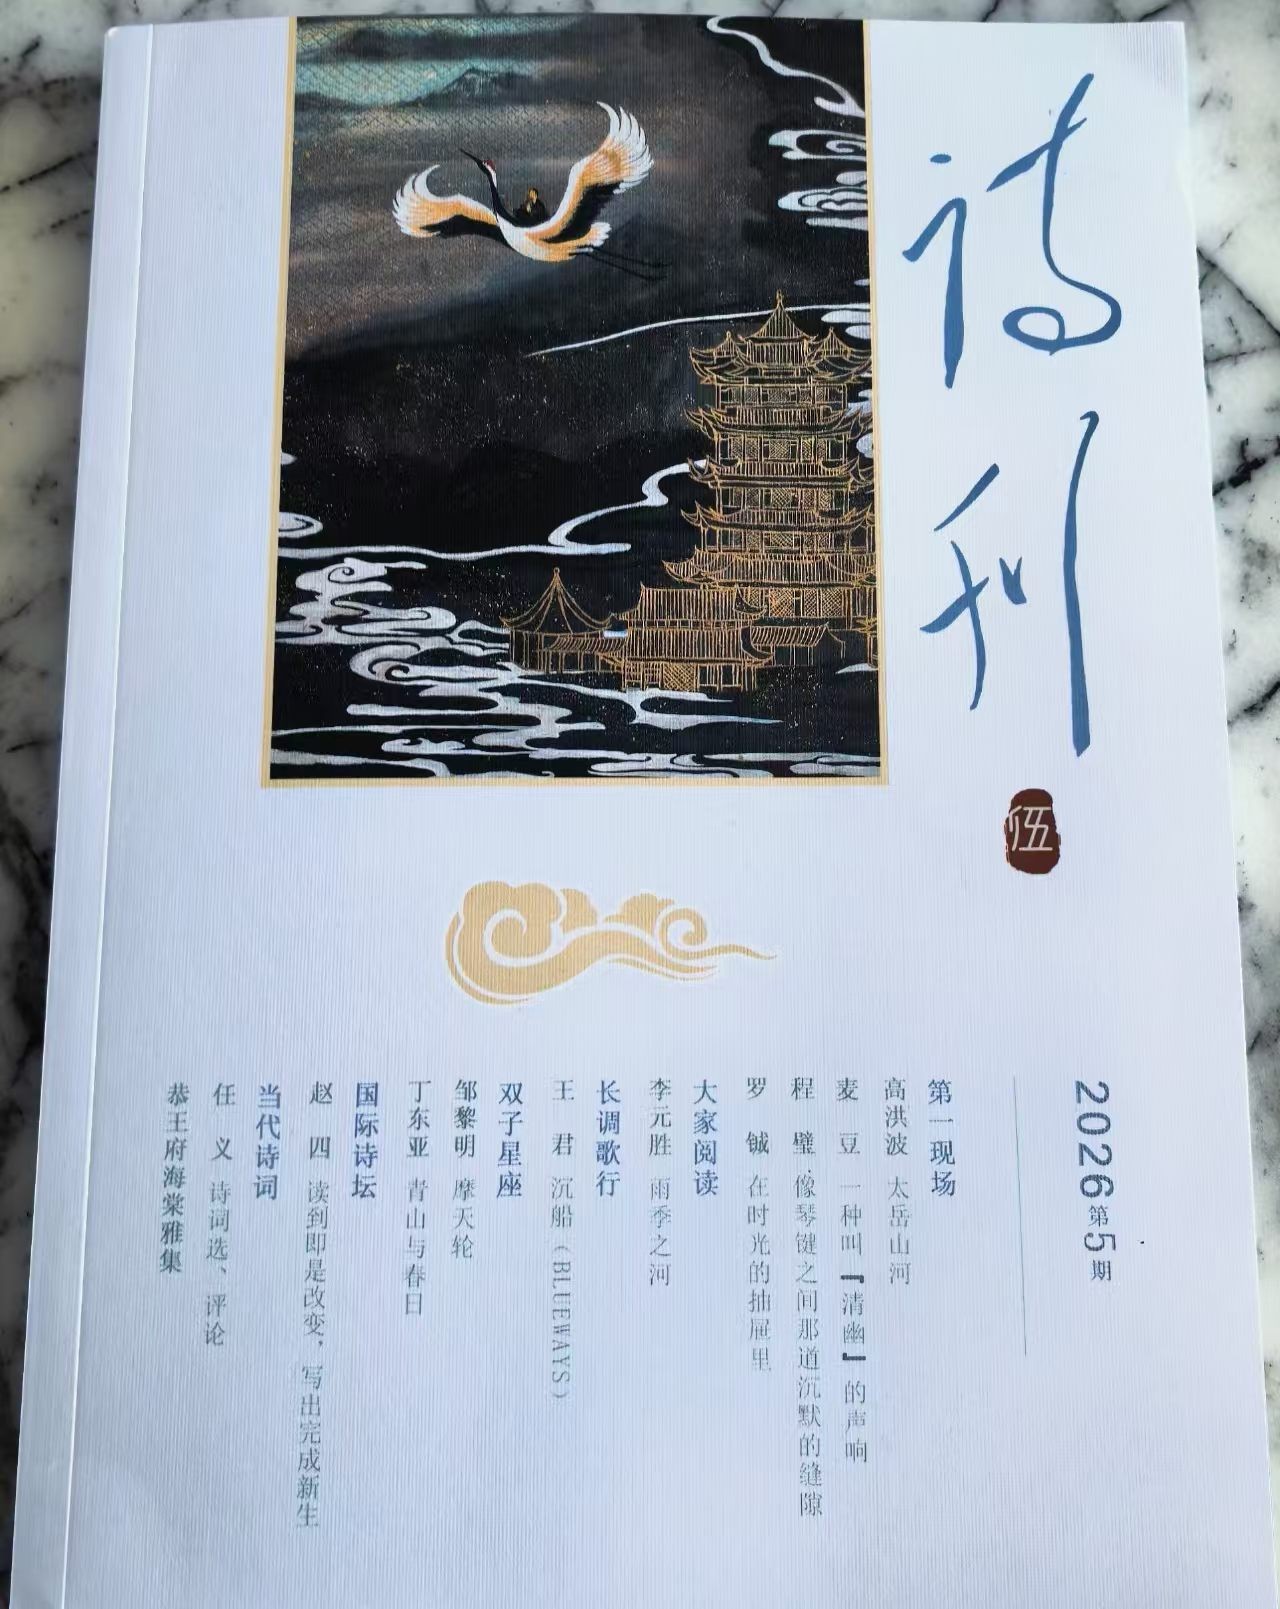 诗刊
伍
2026第5期
第一现场
高洪波 太岳山河
麦 豆 一种叫『清幽』的声响
程 璧 像琴键之间那道沉默的缝隙
罗 铖 在时光的抽屉里
大家阅读
李元胜 雨季之河
长调歌行
王 君 沉船（BLUEWAYS）
双子星座
邹黎明 摩天轮
丁东亚 青山与春日
国际诗坛
赵 四 读到即是改变，写出完成新生
当代诗词
任 义 诗词选、评论
恭王府海棠雅集